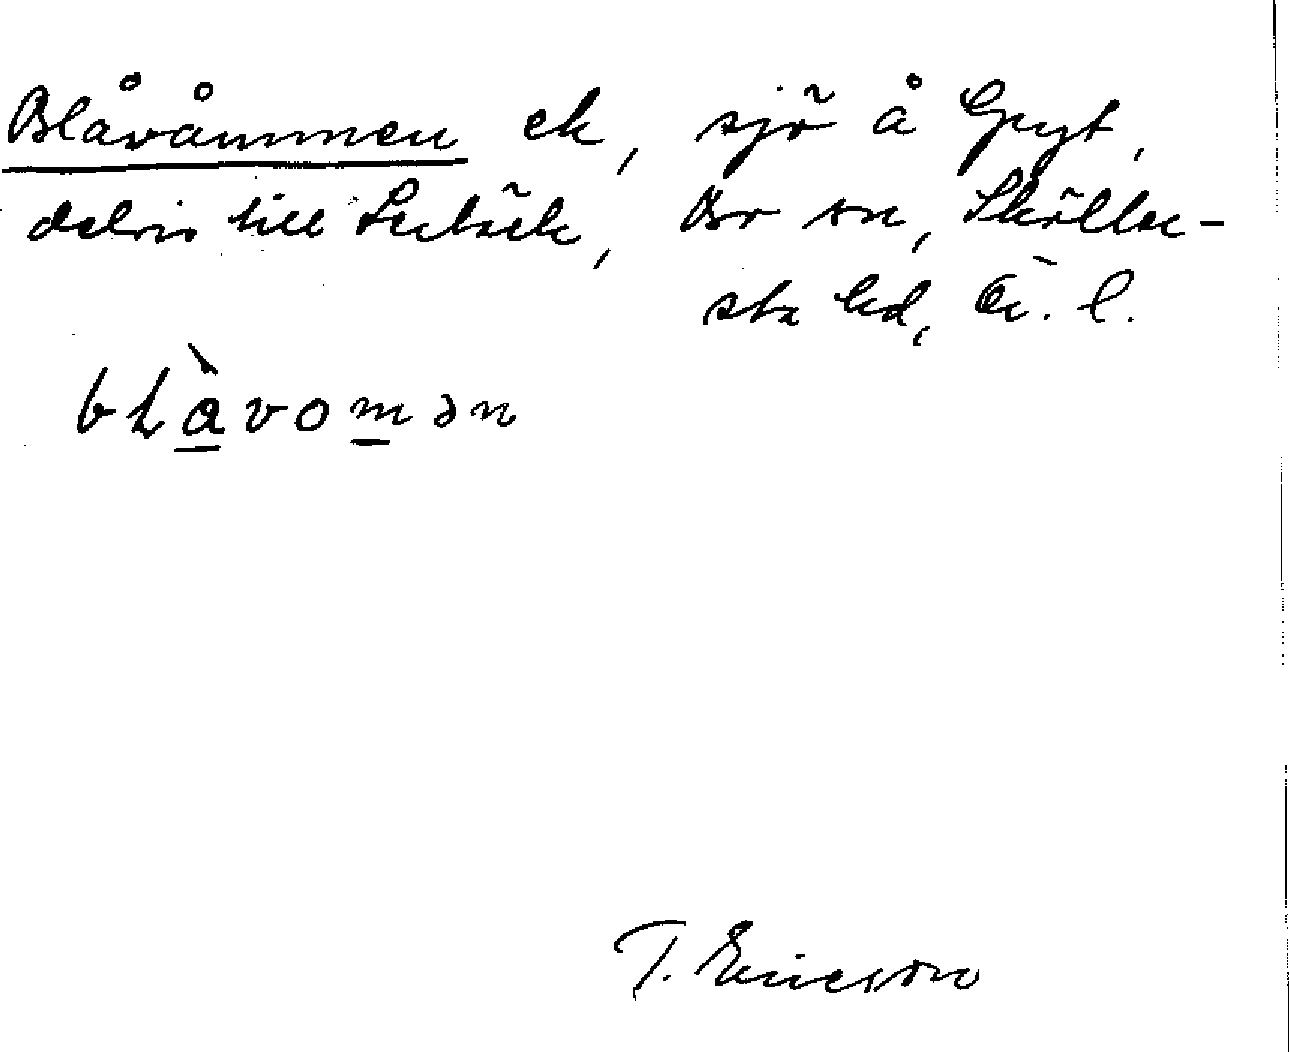 Blåvåmmen ek, sjö å Gryt,
delvis till Lerbäck, Bo sn, Sköllersta hd, Ör. l.
blåvomən
T. Ericsson